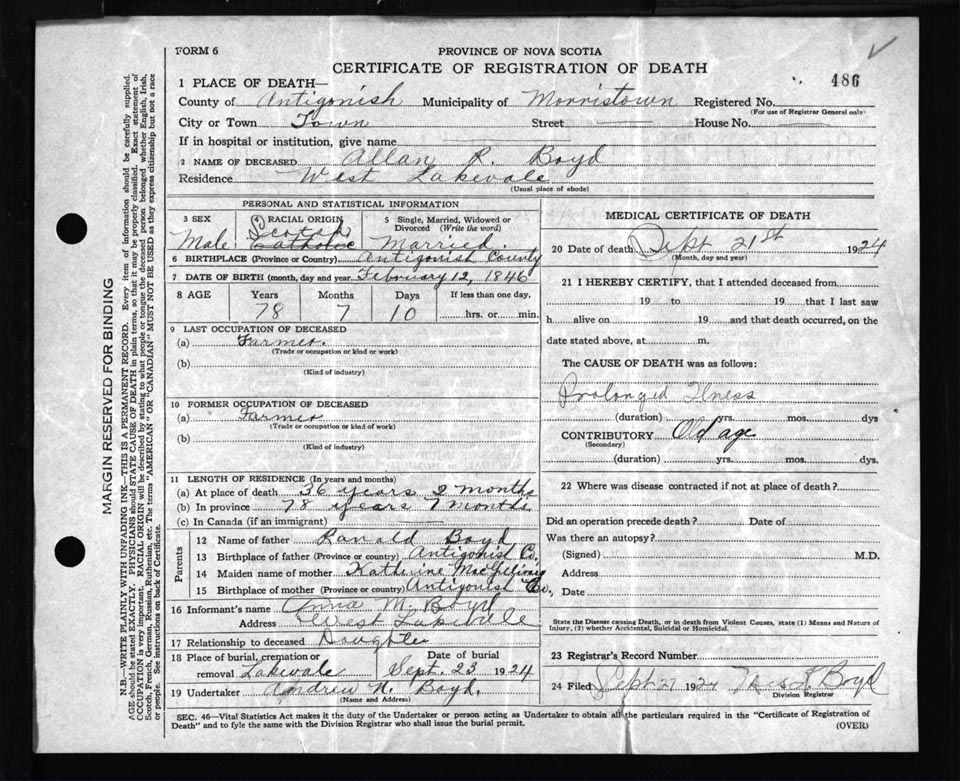 FORM 6
PROVINCE OF NOVA SCOTIA
CERTIFICATE OF REGISTRATION OF DEATH
486
1 PLACE OF DEATH—
County of Antigonish Municipality of Morristown Registered No.
(For use of Registrar General only)
City or Town Town Street — House No. —
If in hospital or institution, give name —
2 NAME OF DECEASED Allan R. Boyd
Residence West Lakevale
(Usual place of abode)
PERSONAL AND STATISTICAL INFORMATION
3 SEX RACIAL ORIGIN 5 Single, Married, Widowed or Divorced (Write the word)
Scotch
Male Catholic Married.
6 BIRTHPLACE (Province or Country) Antigonish County
7 DATE OF BIRTH (month, day and year February 12, 1846
8 AGE Years Months Days If less than one day,
78 7 10 hrs. or min.
9 LAST OCCUPATION OF DECEASED
(a) Farmer.
(Trade or occupation or kind or work)
(b)
(Kind of industry)
10 FORMER OCCUPATION OF DECEASED
(a) Farmer
(Trade or occupation or kind of work)
(b)
(Kind of industry)
11 LENGTH OF RESIDENCE (In years and months)
(a) At place of death 36 years 2 months
(b) In province 78 years 7 months
(c) In Canada (if an immigrant) —
Parents
12 Name of father Ranald Boyd
13 Birthplace of father (Province or country) Antigonish Co.
14 Maiden name of mother Katherine
15 Birthplace of mother (Province or country) Antigonish Co.,
16 Informant's name Anna M. Boyd
Address West Lakevale
17 Relationship to deceased Daughter
18 Place of burial, cremation or removal Lakevale Date of burial Sept. 23 1924
19 Undertaker Andrew N. Boyd.
(Name and Address)
MEDICAL CERTIFICATE OF DEATH
20 Date of death Sept 21st 1924
(Month, day and year)
21 I HEREBY CERTIFY, that I attended deceased from
19 to 19 that I last saw
h alive on 19 and that death occurred, on the
date stated above, at m.
The CAUSE OF DEATH was as follows:
Prolonged Ilness
(duration) yrs. mos. dys
CONTRIBUTORY Old age
(Secondary)
(duration) yrs. mos. dys.
22 Where was disease contracted if not at place of death?
Did an operation precede death? Date of
Was there an autopsy?
(Signed) M.D.
Address
Date
State the Disease causing Death, or in death from Violent Causes, state (1) Means and Nature of
Injury, (2) whether Accidental, Suicidal or Homicidal.
23 Registrar's Record Number
24 Filed Sept 27 1924 Boyd
Division Registrar
SEC. 46—Vital Statistics Act makes it the duty of the Undertaker or person acting as Undertaker to obtain all the particulars required in the "Certificate of Registration of
Death" and to fyle the same with the Division Registrar who shall issue the burial permit.
(OVER)
MARGIN RESERVED FOR BINDING
N.B.—WRITE PLAINLY WITH UNFADING INK—THIS IS A PERMANENT RECORD. Every item of information should be carefully supplied.
AGE should be stated EXACTLY. PHYSICIANS should STATE CAUSE OF DEATH in plain terms, so that it may be properly classified. Exact statement of
OCCUPATION is very important. RACIAL ORIGIN will be described by stating to what people or tongue the deceased person belonged whether English, Irish,
Scotch, French, German, Russian, Ruthenian, etc. The terms "AMERICAN" OR "CANADIAN" MUST NOT BE USED as they express citizenship but not a race
or people. See instructions on back of Certificate.